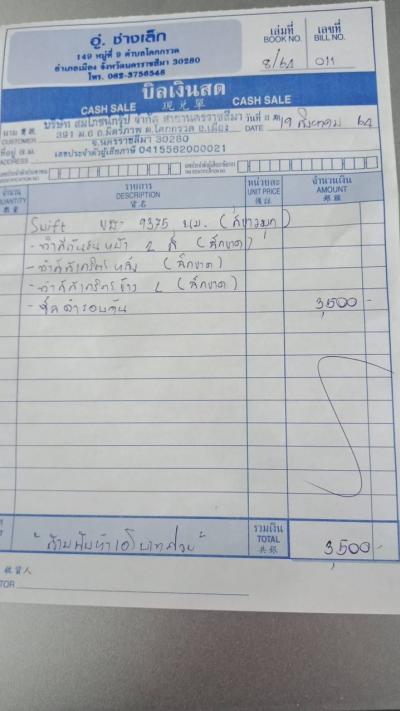 อู่. ช่างเล็ก
149 หมู่ที่ 9 ตำบลโคกกรวด
อำเภอเมือง จังหวัดนครราชสีมา 30280
โทร. 082-3756546
เล่มที่ BOOK NO. 8/64
เลขที่ BILL NO. 011
บิลเงินสด
CASH SALE 現兌單 CASH SALE
นาม CUSTOMER บริษัท สมโภชน์กรุ๊ป จำกัด สาขานครราชสีมา
วันที่ DATE 19 สิงหาคม 64
ที่อยู่ ADDRESS 391 ม.6 ถ.มิตรภาพ ต.โคกกรวด อ.เมือง
จ.นครราชสีมา 30280
เลขประจำตัวผู้เสียภาษี 0415562000021
จำนวน QUANTITY 數量
รายการ DESCRIPTION 貨名
หน่วยละ UNIT PRICE
จำนวนเงิน AMOUNT 銀額
Swift 9375 นม. (สีขาวมุก)
- ทำสีกันชนหน้า 2 สี (สีขาด)
- ทำสี หลัง (สีขาด)
- ทำสี ข้าง L (สีขาด)
- ขัดดำรอบคัน 3,500 -
" สามพันห้าร้อยบาทถ้วน "
รวมเงิน TOTAL 共銀 3,500 -
收貨人
TOR